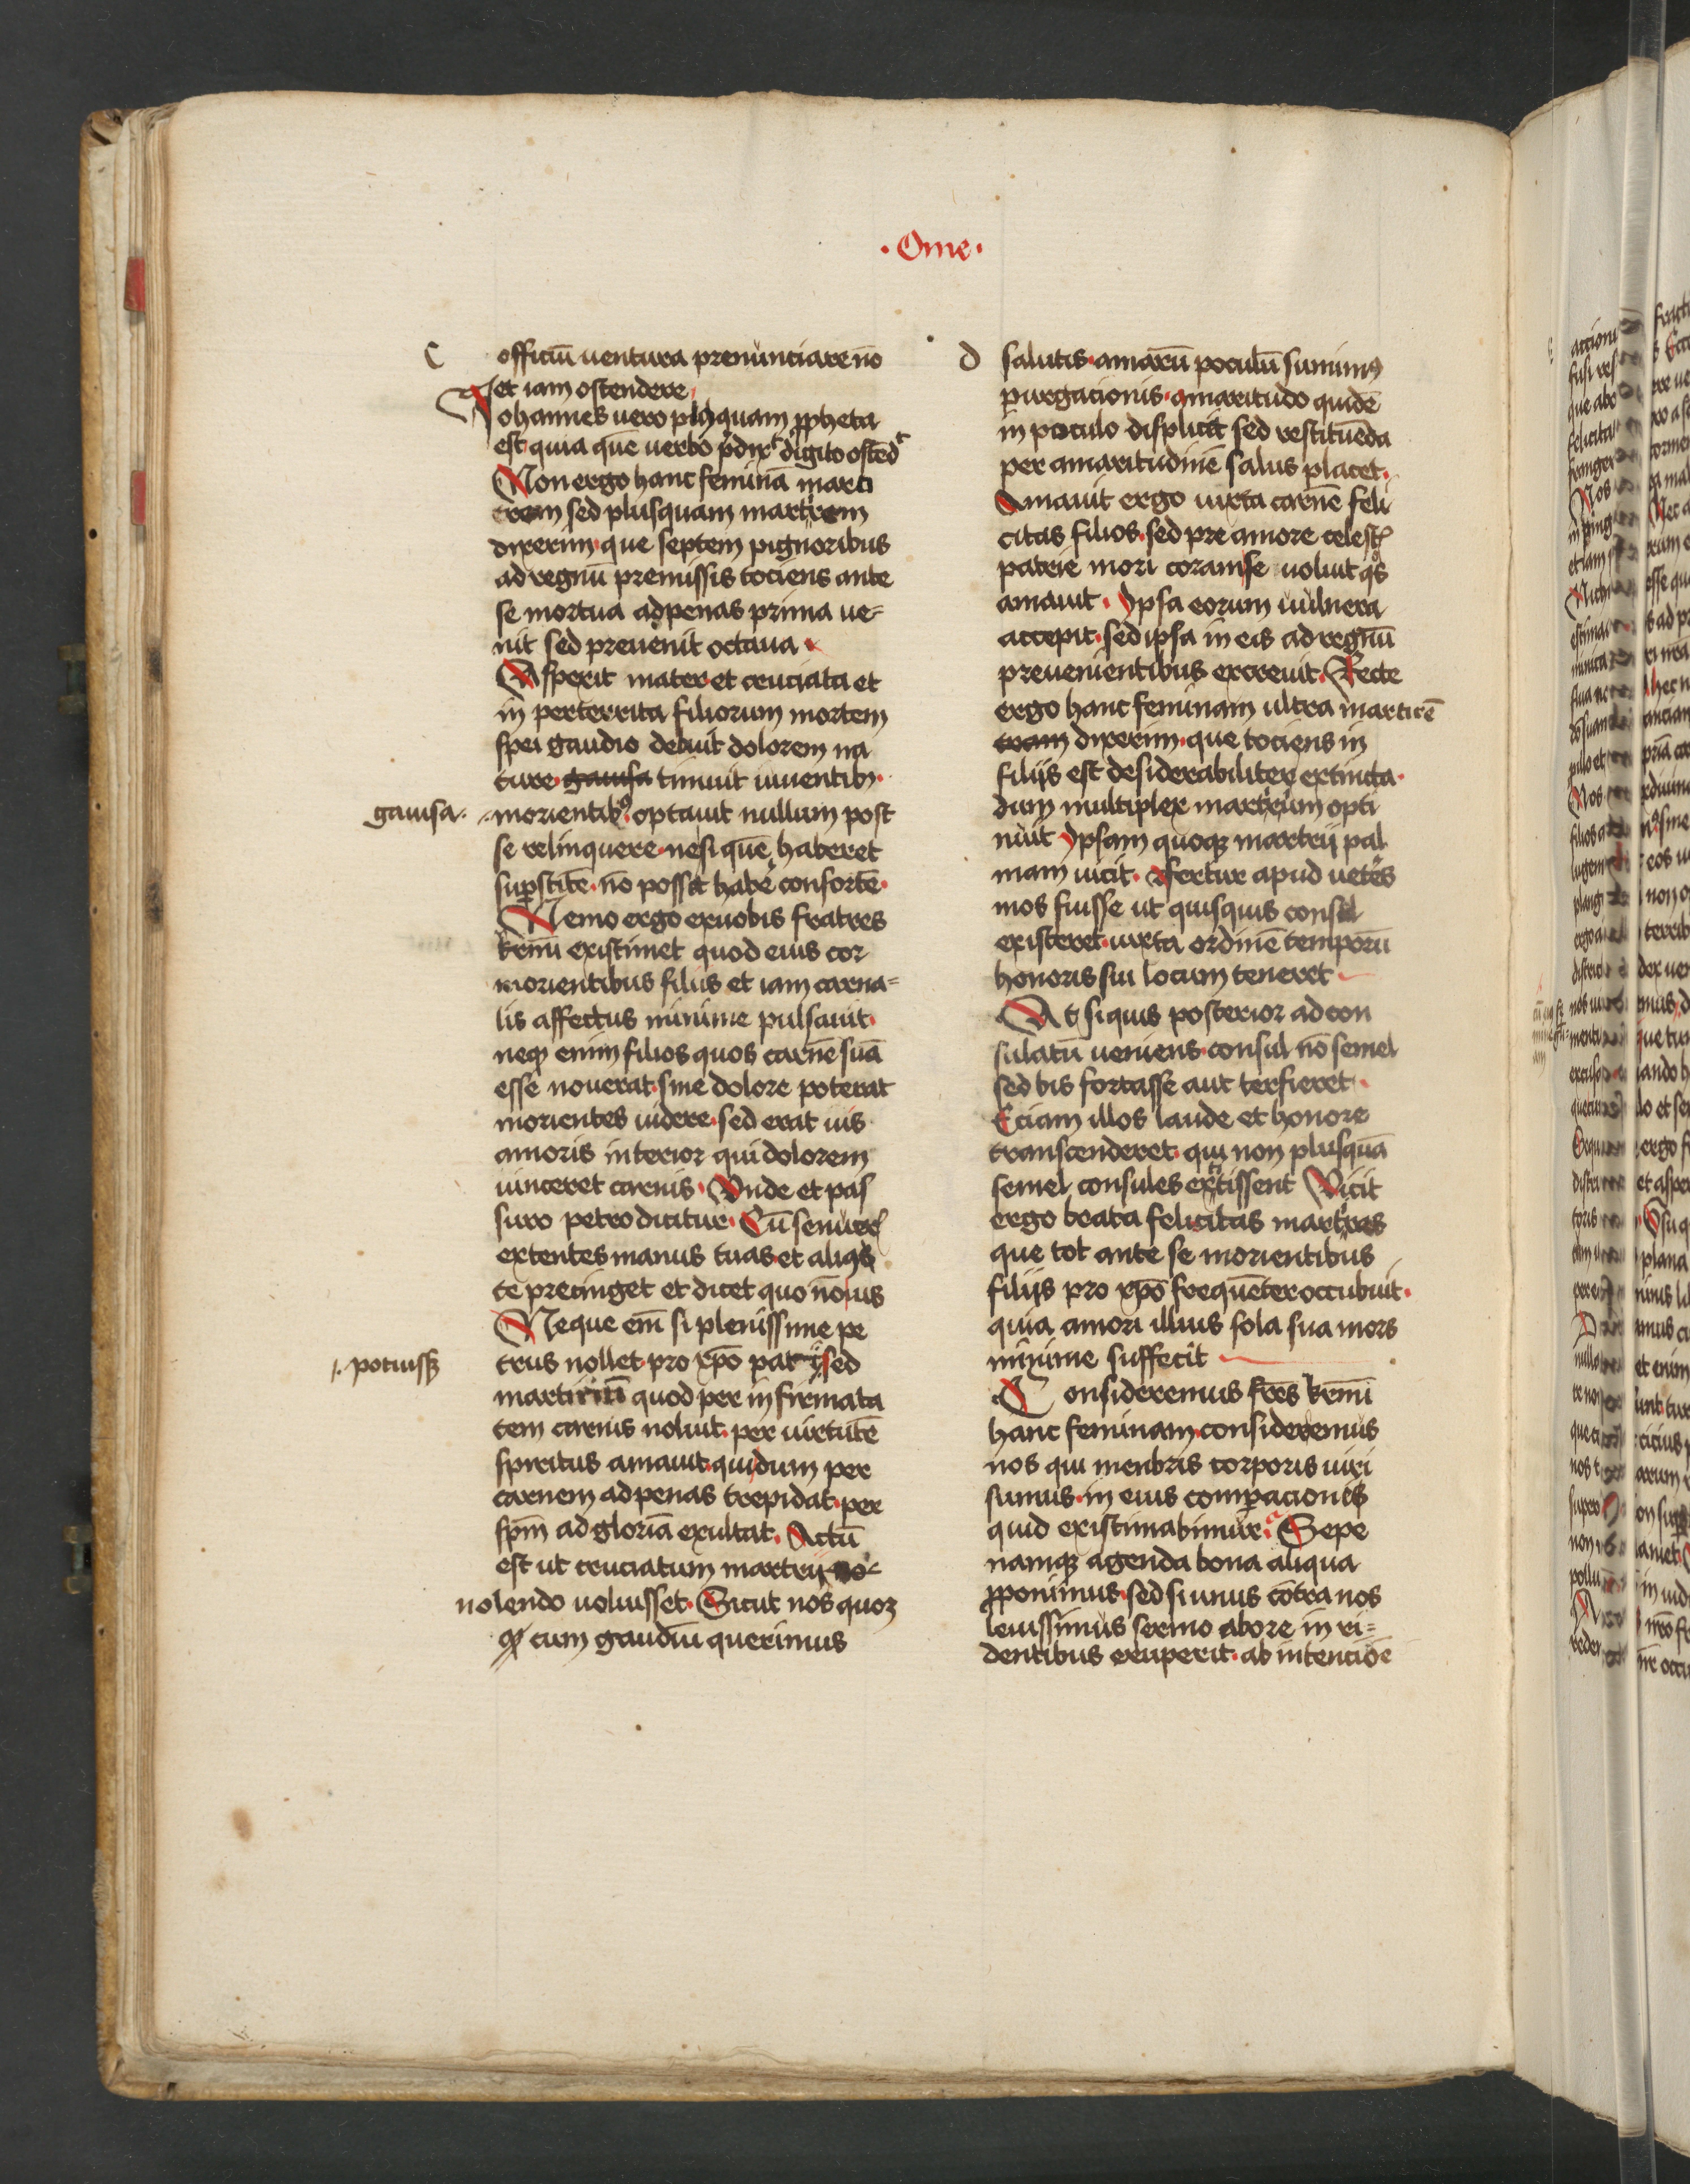 · Ome ·
C
officiū uentura prenunciare nō
et iam ostendere
Johannes uero plusquam ppheta
est quia quē uerbo p̄dixit digito ostēdit
Non ergo hanc feminā marti
rem sed plusquam martirem
dixerim · que septem pignoribus
ad regnū premissis tociens ante
se mortua ad penas prima ue=
nit sed preuenit octaua
Aspexit mater et cruciata et
in perterrita filiorum mortem
spei gaudio debuit dolorem na
ture · gauisa timuit uiuentibꝫ ·
gauisa · morientibꝫ optauit nullum post
se relinquere · ne si quē haberet
suꝑstitē · nō posset habē consortē ·
Nemo ergo ex uobis fratres
krm̄i existimet quod eius cor
morientibus filiis et iam carna=
lis affectus minime pulsauit ·
neqꝫ enim filios quos carnē suā
esse nouerat · sine dolore poterat
morientes uidere · sed erat uis
amoris interior qui dolorem
uinceret carnis · Unde et pas
suro petro dicitur · Cū senuerꝭ
extentes manus tuas et aliqͥs
te precinget et dicet quo nō uis
Neque em̄ si plenissime pe
trus nollet · pro xp̄o pati · sed
potuissꝫ
martiriū quod per in firmata
tem carnis noluit · per uirtutē
spiritus amauit · qui dum per
carnem ad penas trepidat · per
spm̄ ad gloriā exultat · Actū
est ut cruciatum martirij no
nolendo uoluisset · Sicut nos quoꝫ
qꝫ cum gaudiū querimus
d
salutis · amarū poculū sumimꝰ
purgacionis · amaritudo quidē
in poculo displicit sed restituēda
per amaritudinē salus placet ·
Amauit ergo iuxta carnē feli
citas filios · sed pre amore celestꝭ
patrie mori coram se uoluit qͦs
amauit · Ipsa eorum uulnera
accepit · sed ipsa in eis ad regnū
preuenientibus excreuit · Recte
ergo hanc feminam ultra martirē
tram dixerim · que tociens in
filijs est desiderabiliter extincta ·
dum multiplex martirium opti
nuit Ipsam quoqꝫ martirij pal
mam uicit · Fertur apud ueteres
mos fuisse ut quisquis consul
existeret · iuxta ordinē temporū
honoris sui locum teneret
At si quis posterior ad con
sulatū ueniens · consul nō semel
sed bis fortasse aut ter fieret ·
Eciam illos laude et honore
transcenderet · qui non plusquā
semel consules extitissent Vicit
ergo beata felicitas martires
que tot ante se morientibus
filijs pro xp̄o frequēter occubuit ·
quia amori illius sola sua mors
minime suffecit
Consideremus frēs krm̄i
hanc feminam · consideremus
nos qui menbris corporis uiri
sumus · in eius comꝑacionis
quid existimabimur · Sepe
namqꝫ agenda bona aliqua
ꝓponimus · sed si unus cōtra nos
leuissimus sermo ab ore in ri=
dentibus eruperit · ab intenciōe